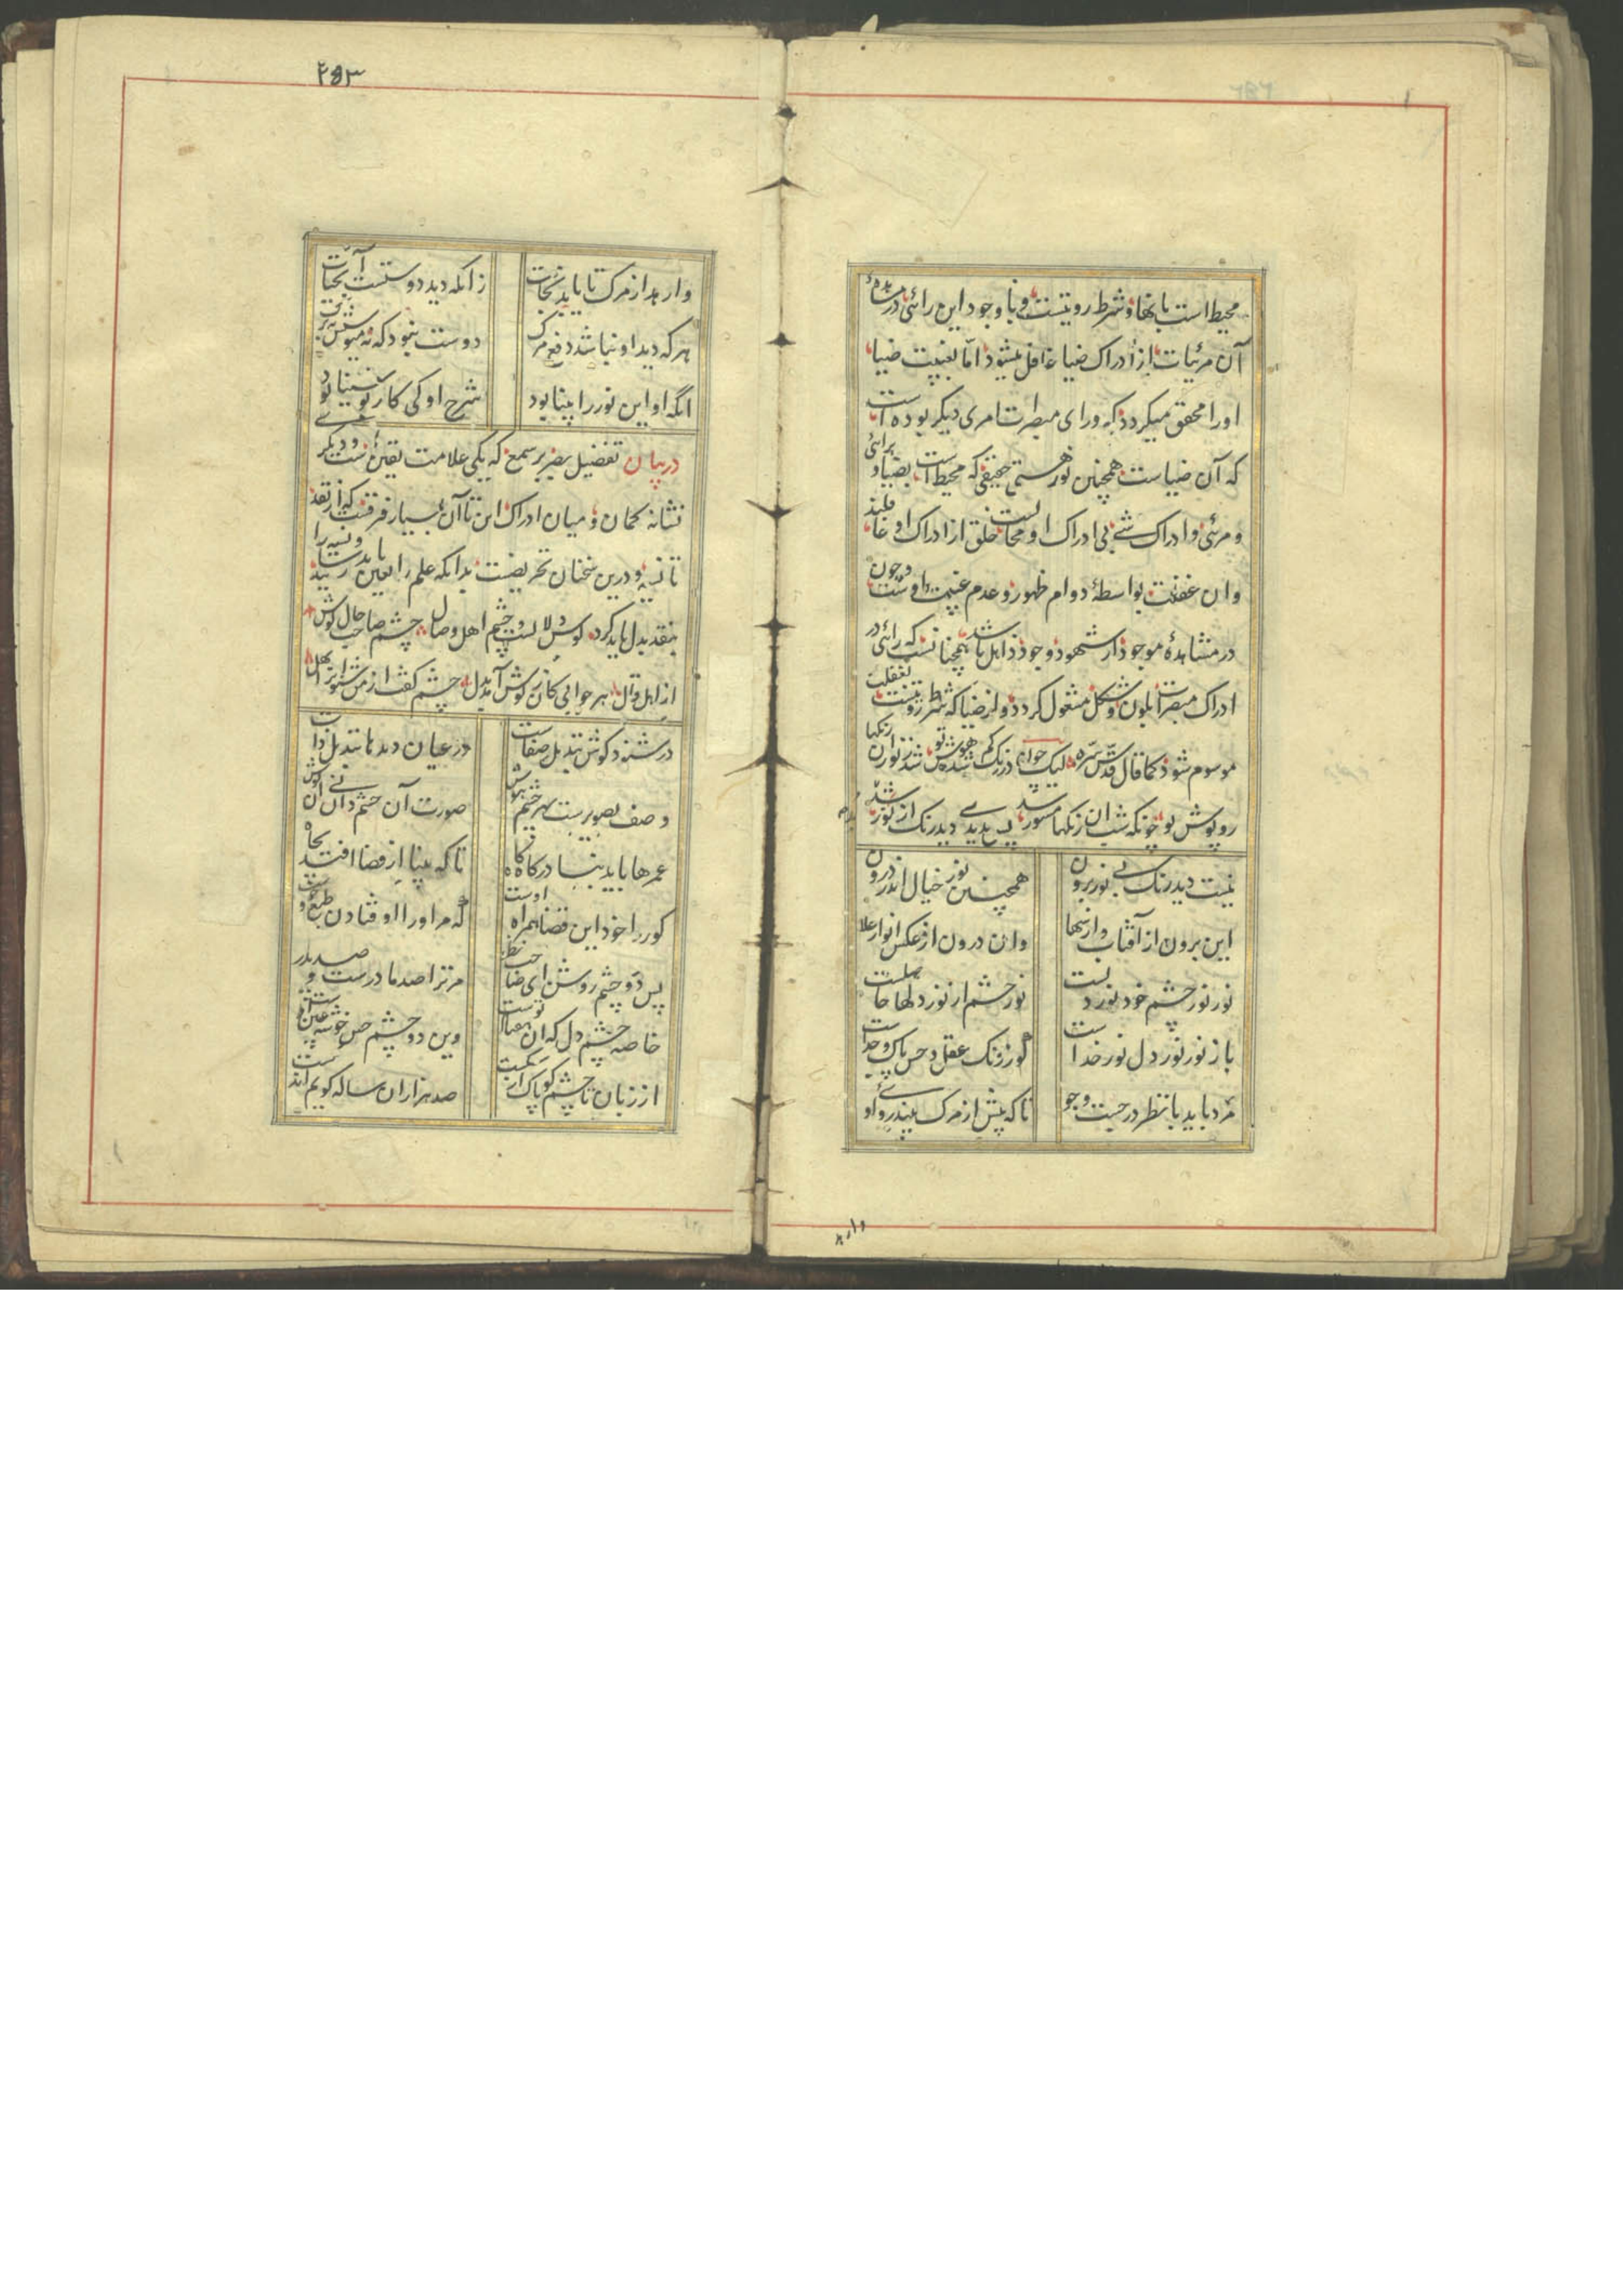 محیط است بانها و شرط رویتست و با وجود این رائی در مشاهدهٔ
آن مرئیات از ادراک ضیا غافل میشود اما بغیبت ضیا
اورا محقق میکردد که ورای مبصرات امری دیکر بوده است
که آن ضیاست همچنین نور هستی حقیقی که محیط است بضیا و برائی
و مرئی و ادراک شئ بی ادراک او محالست خلق از ادراک او غافلند
وان غفلت بواسطهٔ دوام ظهور و عدم غیبت اوست و چون
در مشاهدهٔ موجود از شهود وجود ذاهل باشد همچنانست که رائی در
ادراک مبصرات بلون و شکل مشغول کردد و از ضیا که شرط رویتست بغفلت
موسوم شود کما قال قدس سره لیک چون در رنک کم شد هوش تو شد ز نور آن رنکها
روپوش تو چونکه شب آن رنکها مستور شد پس بدیدی دید رنک از نور شد
نیست دید رنک بی نور برون
همچنین نور خیال اندرون
این برون از آفتاب و از سها
وان درون از عکس انوار علا
نور نور چشم خود نور دلست
نور چشم از نور دلها حاصلست
باز نور نور دل نور خداست
کو ز نور عقل و حس پاک و جداست
مرد باید با نظر در جست و جو
تا که پیش از مرک بیند روی او
وارهد
۲۵۳
وارهد از مرک تا یابد نجات
زانکه دید دوستست آب حیات
هر که دید او نباشد دفع مرک
دوست نبود که نه میوستش نه برک
انکه او این نور را بینا بود
شرح او کی کار بو سینا بود
دربیان تفضیل بصر بر سمع که یکی علامت یقین است و دیکر
نشانه کمان و میان ادراک این تا آن بسیار فرقست که از نقد
تا نسیه و درین سخنان تحریضست بدانکه علم را بعین باید رسانید و نسیه را
بنقد بدل باید کرد کوش دلالست و چشم اهل وصال چشم صاحب حال کوش
از اهل قال هر جوابی کان ز کوش آید بدل چشم کفت از من شنو آنرا بهل
در شنود کوش تبدیل صفات
در عیان دیدها تبدیل ذات
وصف تصویرست بهر چشم هوش
صورت آن چشم دان نی آن کوش
عمرها باید بنادر کاه کاه
تا که بینا از قضا افتد بچاه
کور را خود این قضا همراه اوست
که مر او را اوفتادن طبع و خوست
پس دو چشم روشن ای صاحب نظر
مر ترا صد مادرست و صد پدر
خاصه چشم دل که آن هفتاد توست
وین دو چشم حس خوشه چین اوست
از زبان تا چشم کو پاک از شکست
صد هزاران ساله کویم اندکست